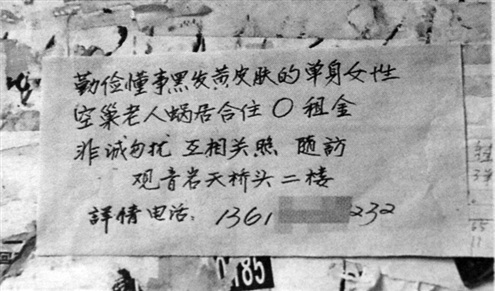 勤俭懂事黑发黄皮肤的单身女性
空巢老人蜗居合住 0 租金
非诚勿扰 互相关照 随訪
观音岩天桥头二楼
詳情电话: 1361 232
185